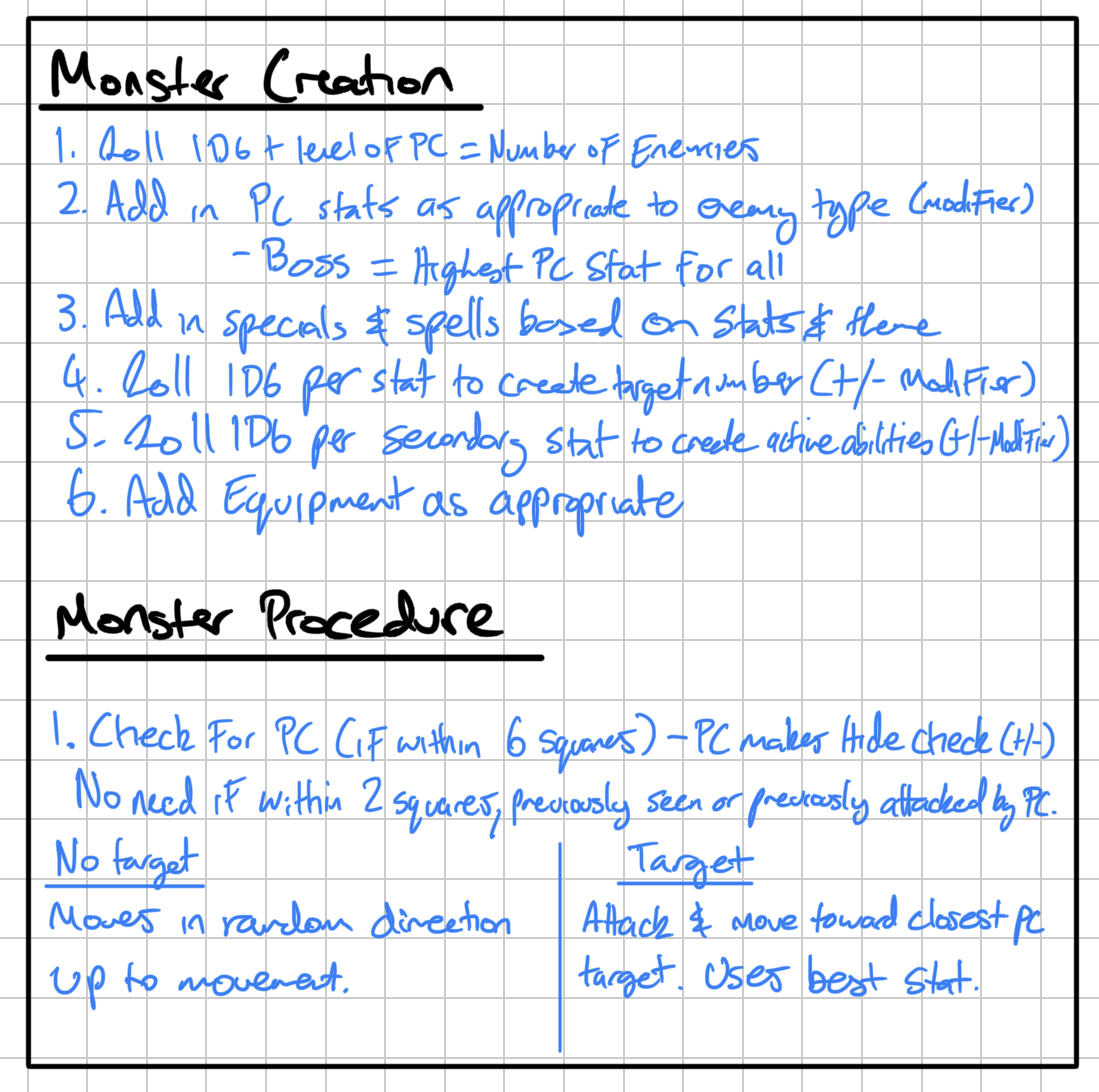 Monster Creation
1. Roll 1D6 + level of PC = Number of Enemies
2. Add in PC stats as appropriate to enemy type (modifier)
- Boss = Highest PC stat for all
3. Add in specials & spells based on stats & theme
4. Roll 1D6 per stat to create target number (+/- Modifier)
5. Roll 1D6 per secondary stat to create active abilities (+/- Modifier)
6. Add Equipment as appropriate
Monster Procedure
1. Check for PC (if within 6 squares) - PC makes Hide check (+/-)
No need if within 2 squares, previously seen or previously attacked by PC.
No target
Moves in random direction
up to movement.
Target
Attack & move toward closest PC
target. Uses best stat.